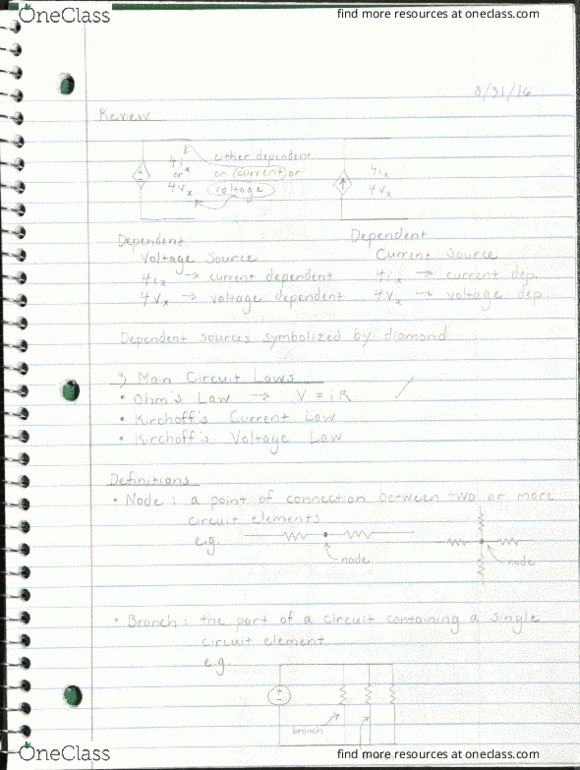 OneClass
find more resources at oneclass.com
8/31/16
Review
4ix either dependent
or on (current) or
4Vx voltage
4ix
4Vx
Dependent
Voltage Source
4ix → current dependent
4Vx → voltage dependent
Dependent
Current Source
4ix → current dep.
4Vx → voltage dep.
Dependent sources symbolized by diamond
3 Main Circuit Laws
• Ohm's Law → V = iR
• Kirchoff's Current Law
• Kirchoff's Voltage Law
Definitions
• Node : a point of connection between two or more
circuit elements
e.g.
node
node
• Branch : the part of a circuit containing a single
circuit element
e.g.
branch
OneClass
find more resources at oneclass.com